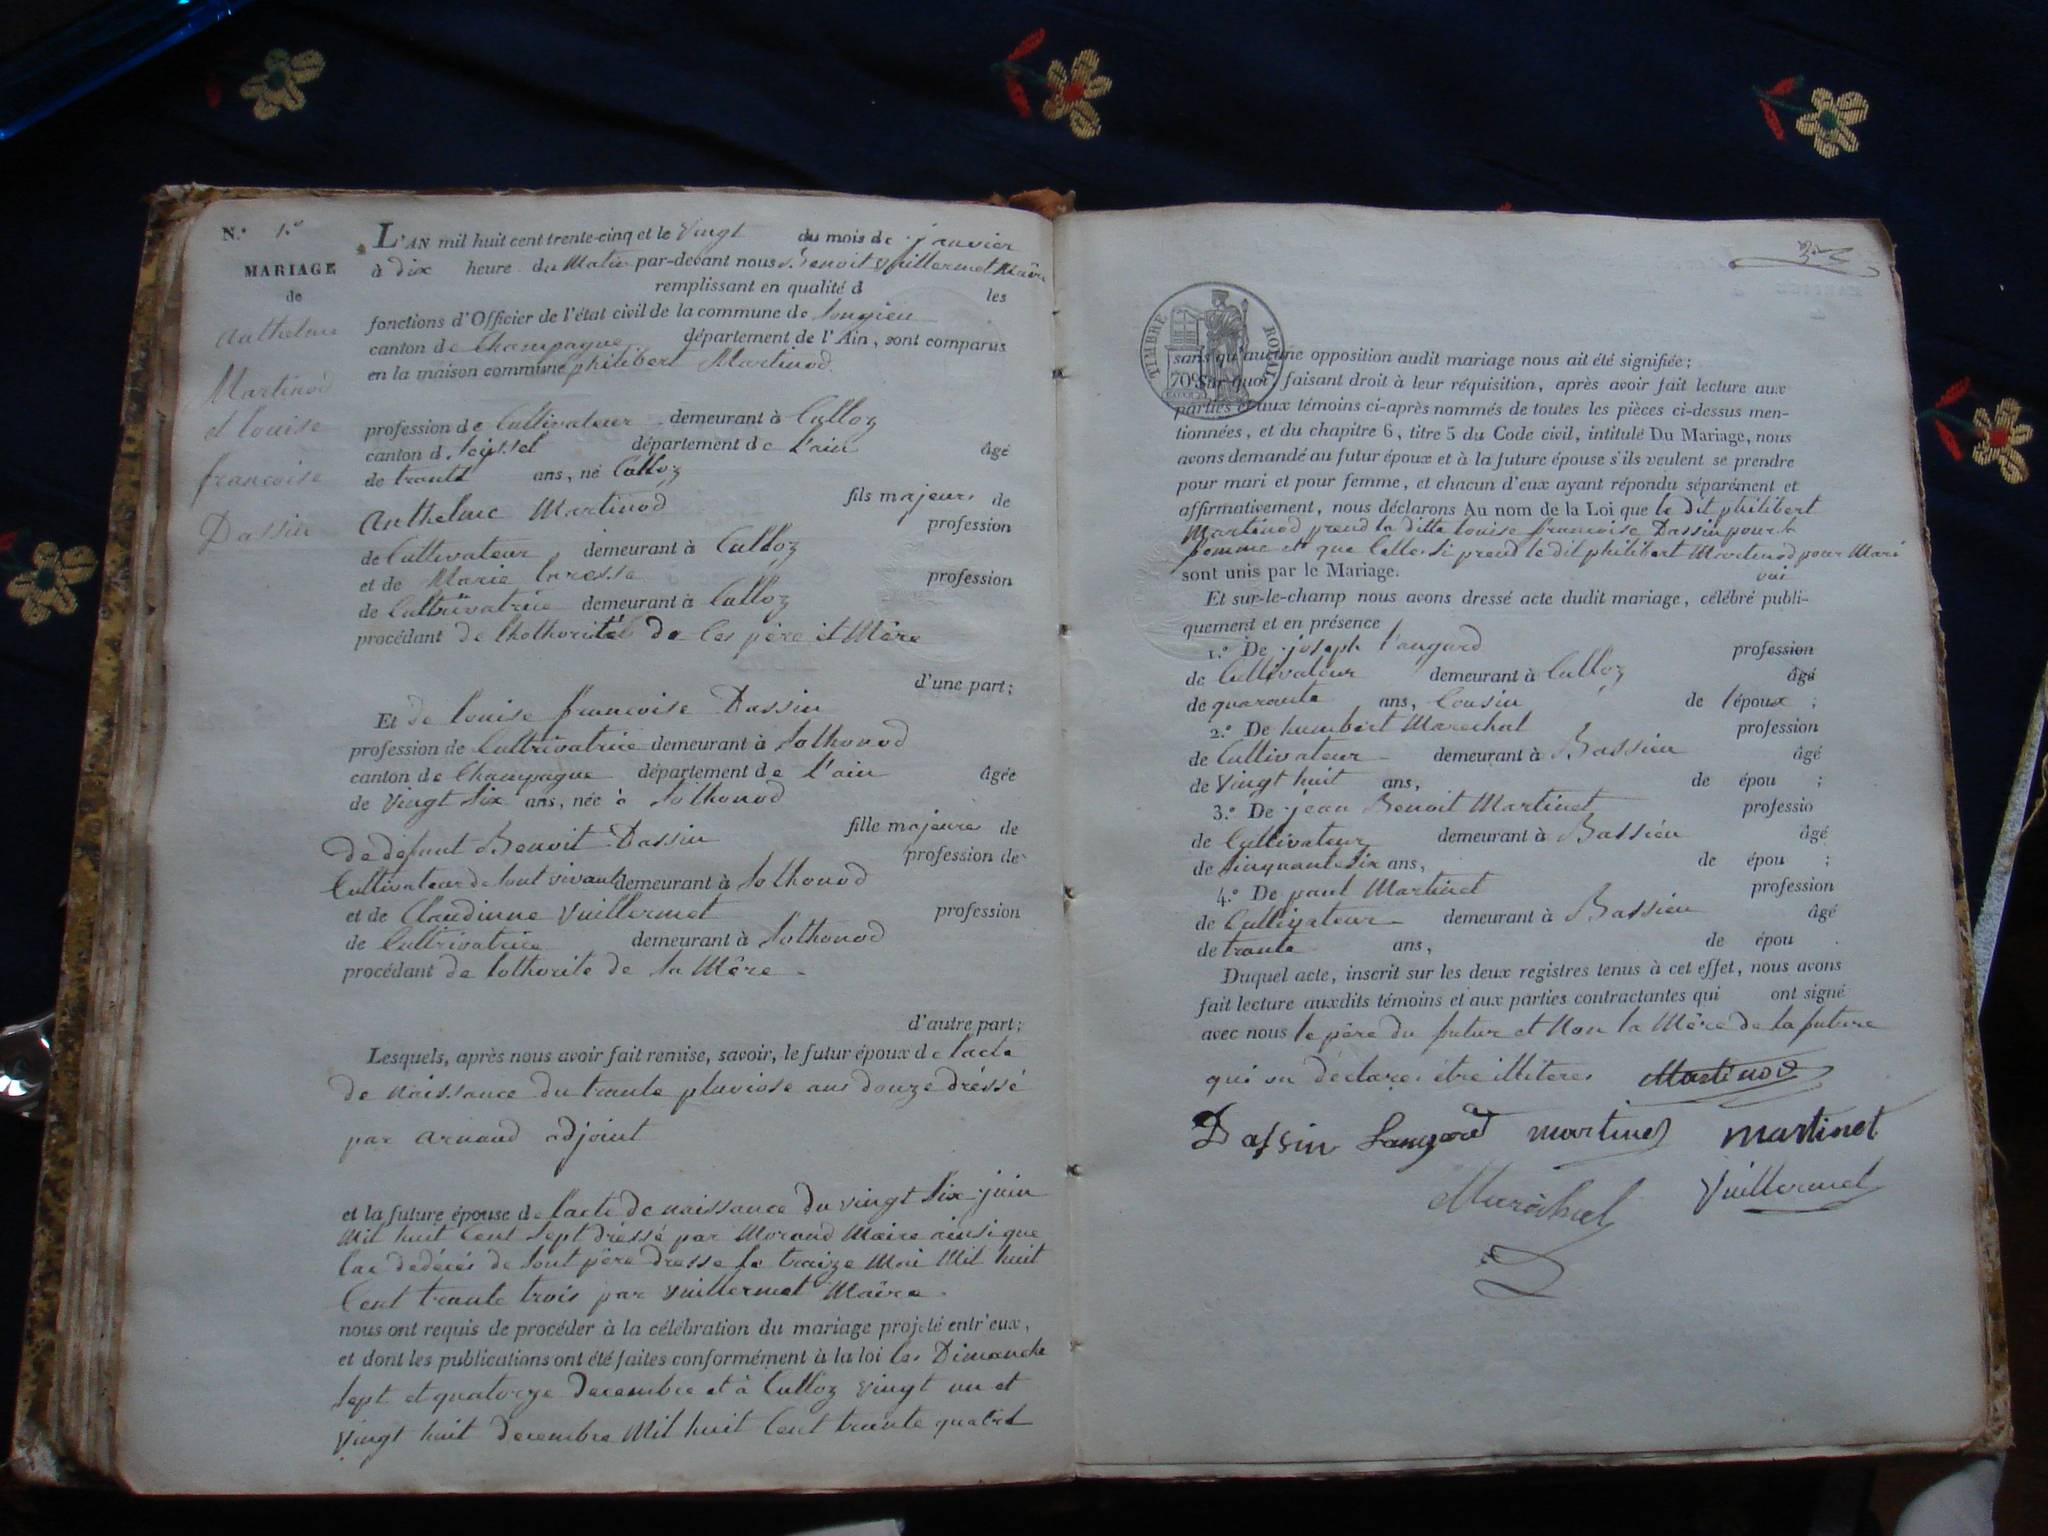 N.° 1.°
MARIAGE
de
Anthelme
Martinod
et louise
françoise
Dassin
L'AN mil huit cent trente-cinq et le Vingt du mois de janvier
à dix heure du Matin par-devant nous Benoit Vuillermet Maire
remplissant en qualité d les
fonctions d'Officier de l'état civil de la commune de Songieu
canton de Champagne département de l'Ain, sont comparus
en la maison commune philibert Martinod
profession de Cultivateur demeurant à Culloz
canton d Seyssel département de L'ain âgé
de trante ans, né Culloz
fils majeur de
Anthelme Martinod profession
de Cultivateur demeurant à Culloz
et de Marie profession
de Cultrivatrice demeurant à Culloz
procédant de Lhothorité de Ces père et Mère
d'une part;
Et de louise françoise Dassin
profession de Cultrivatrice demeurant à Sothonod
canton de Champagne département de L'ain âgée
de Vingt Six ans, née à Sothonod
fille majeure de
de defunt Benoit Dassin profession de
Cultivateur de Sont vivant demeurant à Sothonod
et de Claudinne Vuillermet profession
de Cultrivatrice demeurant à Sothonod
procédant de Lothorite de Sa Mère
d'autre part;
Lesquels, après nous avoir fait remise, savoir, le futur époux de lacte
de naissance du trante pluviose ans douze dréssé
par Arnaud adjoint
et la future épouse de lacte de naissance du vingt Six juin
Mil huit Cent Sept dréssé par Morand Maire ainsi que
lac dedécés de Sont père dresse le traize Mai Mil huit
Cent trante trois par Vuillermet Maire
nous ont requis de procéder à la célébration du mariage projeté entr'eux,
et dont les publications ont été faites conformément à la loi les Dimanche
Sept et quatorze decembre et à Culloz vingt un et
Vingt huit decembre Mil huit Cent trante quatre
sans qu'aucune opposition audit mariage nous ait été signifiée;
TIMBRE ROYAL
70c
Sur quoi, faisant droit à leur réquisition, après avoir fait lecture aux
parties et aux témoins ci-après nommés de toutes les pièces ci-dessus men-
tionnées, et du chapitre 6, titre 5 du Code civil, intitulé Du Mariage, nous
avons demandé au futur époux et à la future épouse s'ils veulent se prendre
pour mari et pour femme, et chacun d'eux ayant répondu séparément et
affirmativement, nous déclarons Au nom de la Loi que le dit philibert
Martinod prend la ditte louise françoise Dassin pour
femme et que Celle Si prend le dit philibert Martinod pour Mari
sont unis par le Mariage.
Et sur-le-champ nous avons dressé acte dudit mariage, célébré publi-
quement et en présence
1.° De joseph Langard profession
de Cultivateur demeurant à Culloz âgé
de quarante ans, Cousin de l'époux ;
2.° De humbert Marechal profession
de Cultivateur demeurant à Bassieu âgé
de Vingt huit ans, de épou ;
3.° De jean Benoit Martinet professio
de Cultivateur demeurant à Bassieu âgé
de Sinquante Six ans, de épou ;
4.° De paul Martinet profession
de Cultivateur demeurant à Bassieu âgé
de trante ans, de épou .
Duquel acte, inscrit sur les deux registres tenus à cet effet, nous avons
fait lecture auxdits témoins et aux parties contractantes qui ont signé
avec nous le père du futur et Non la Mère de la future
qui on déclare être illiteres Martinod
Dassin Langard martinet martinet
Maréchal Vuillermet